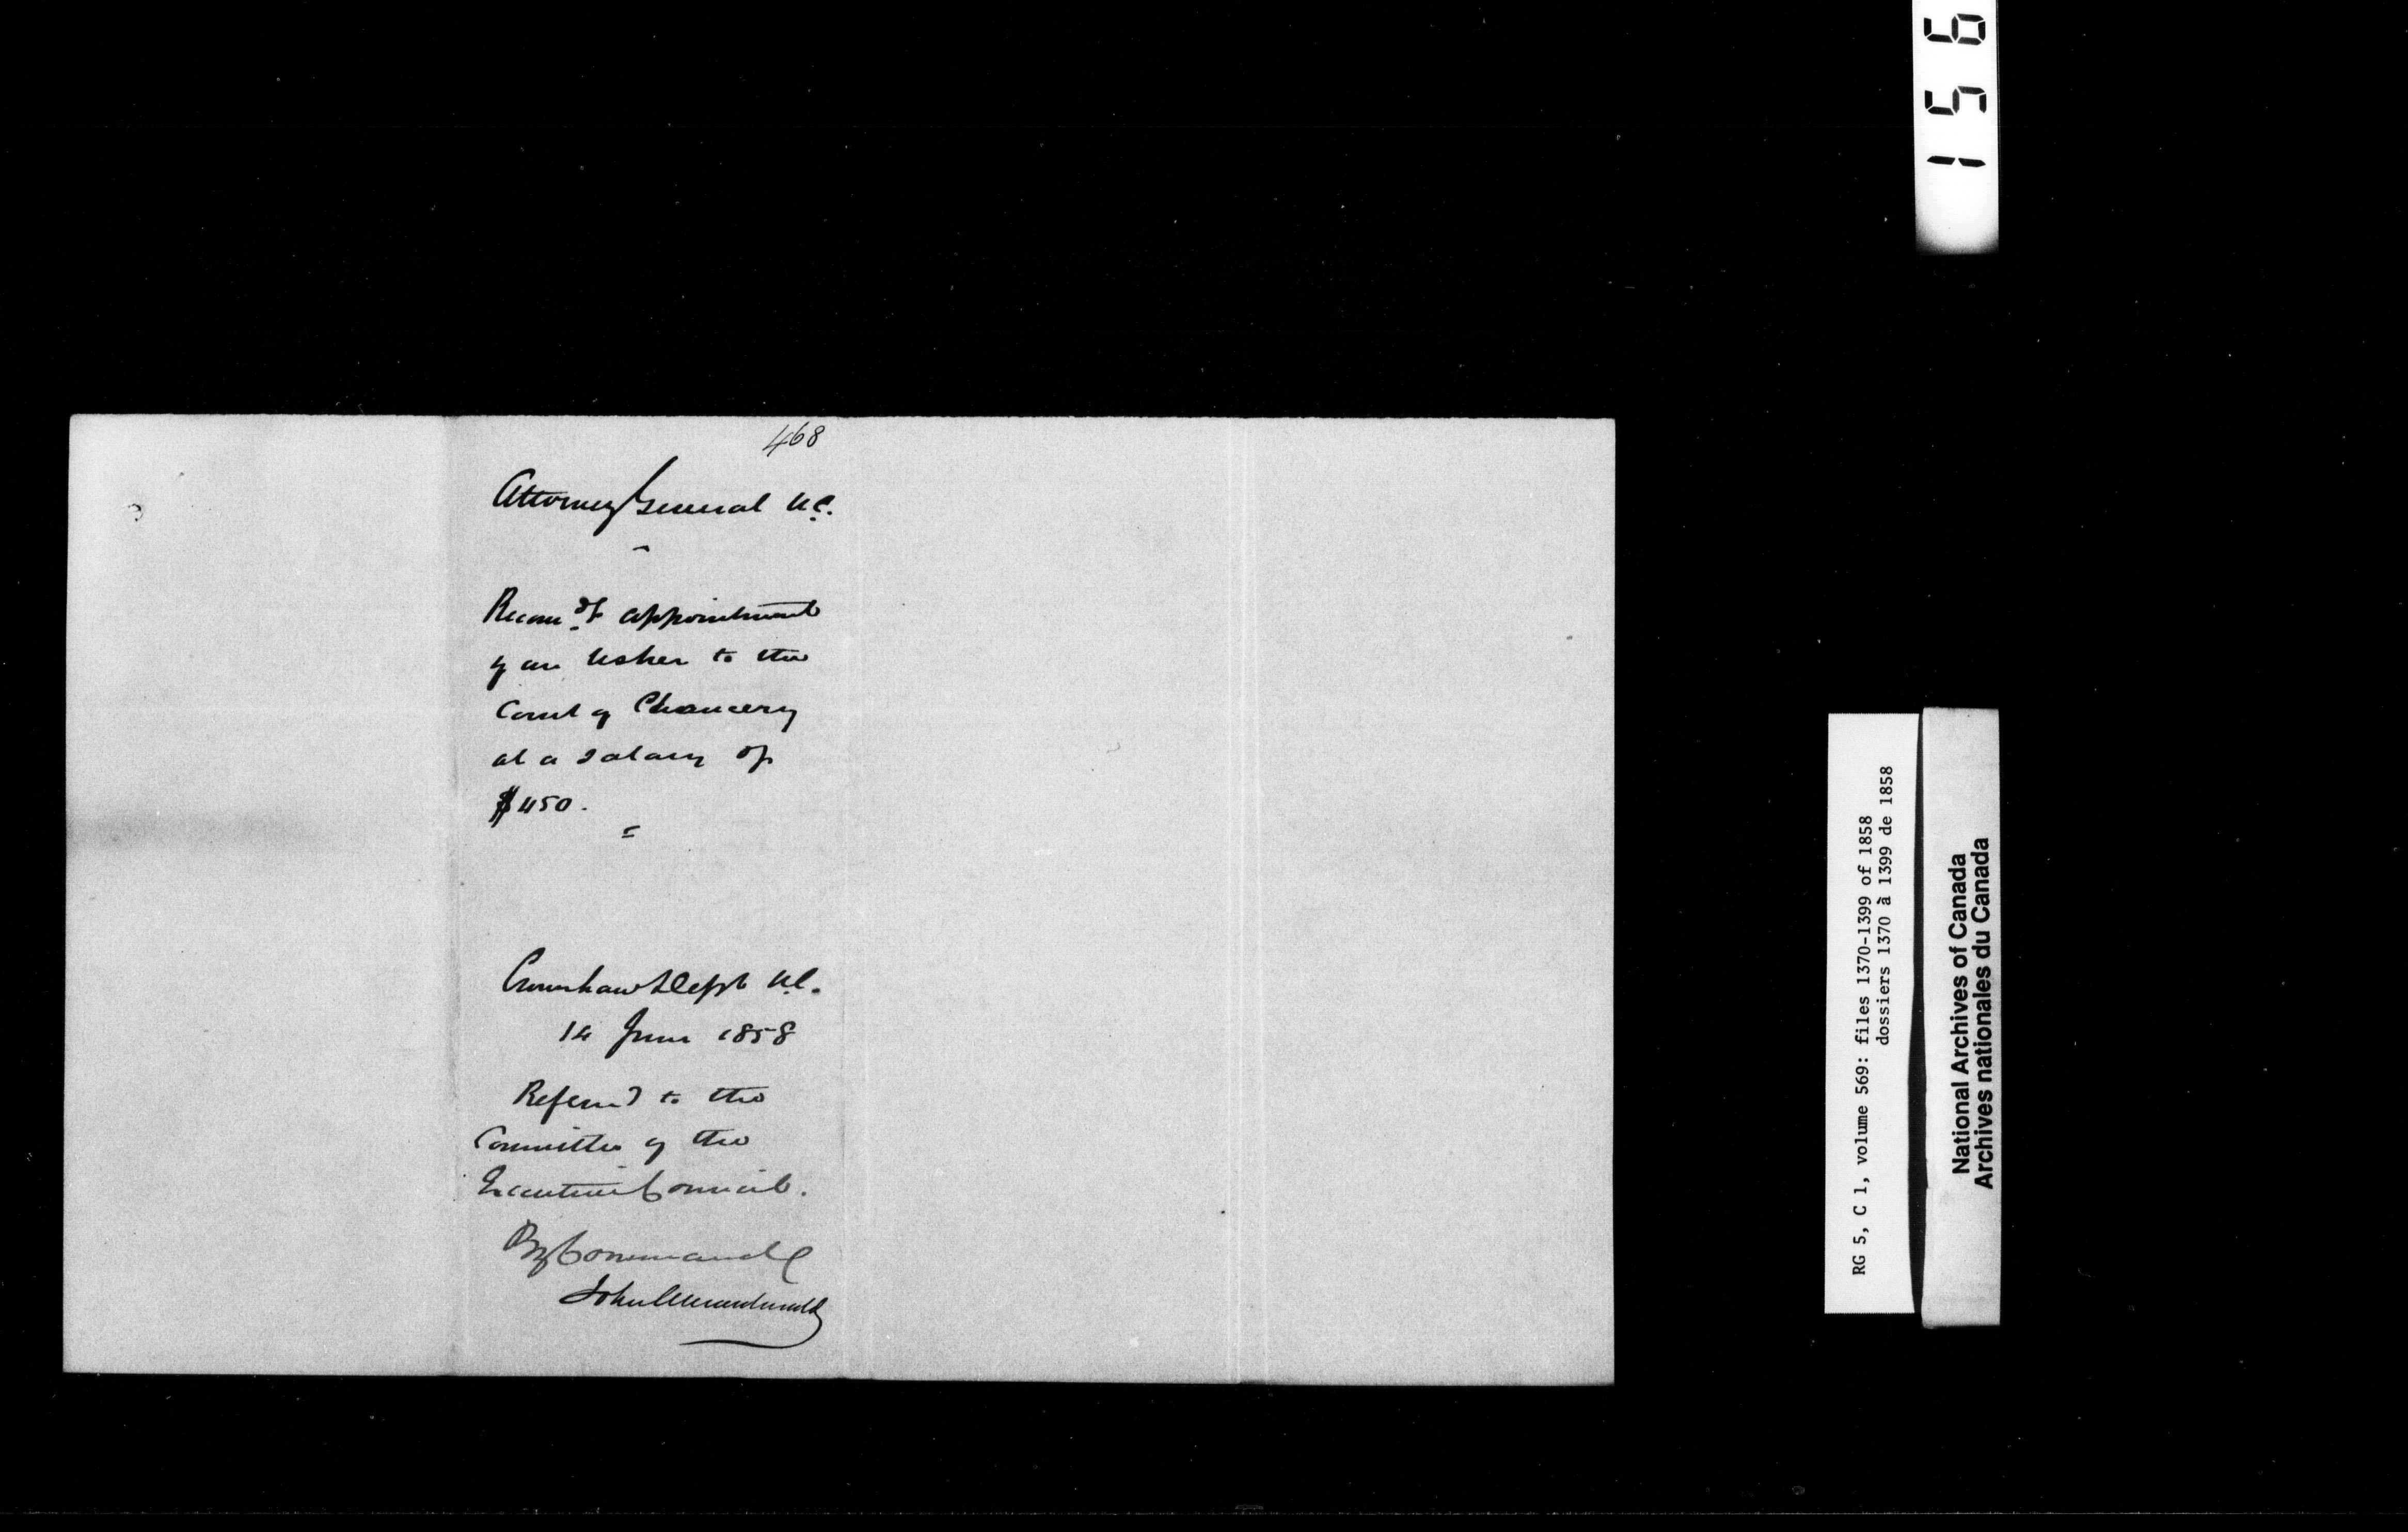 468
Attorney General U.C.
Recom.ds appointment
of an Usher to the
Court of Chancery
at a salary of
$450.
Crown Law Dept U.C.
14 June 1858
Referred to the
Committee of the
Executive Council.
By Command
John A Macdonald
156
RG 5, C 1, volume 569: files 1370-1399 of 1858
dossiers 1370 à 1399 de 1858
National Archives of Canada
Archives nationales du Canada